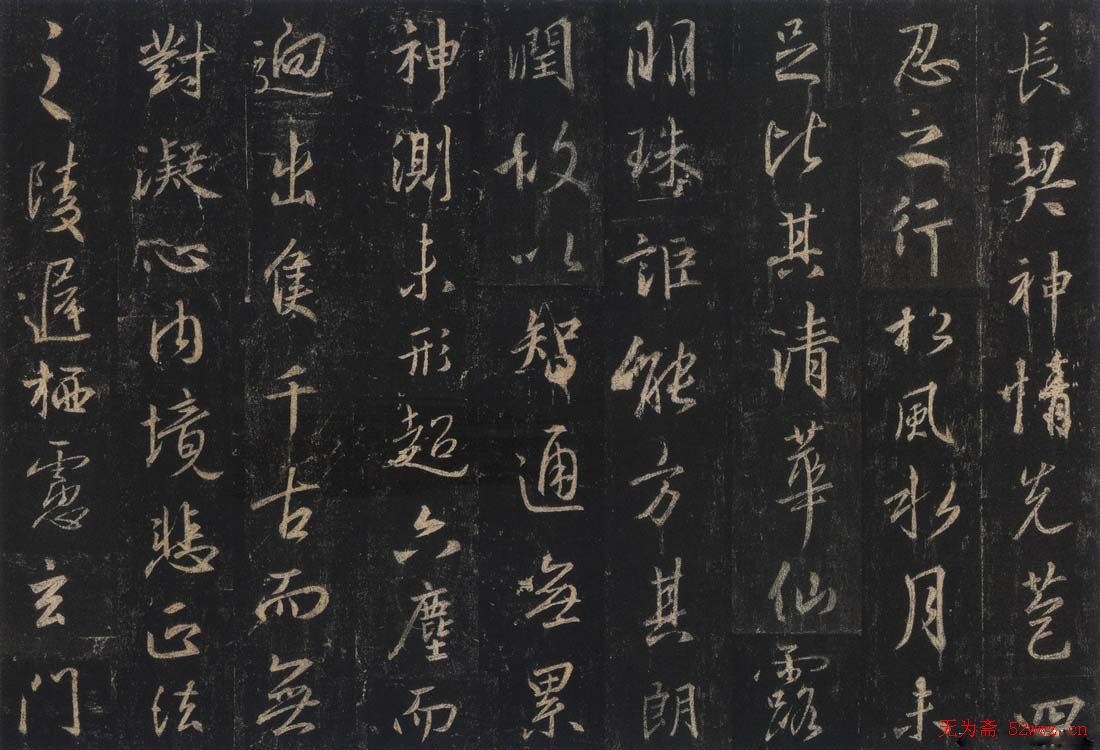 長契神情先苞四
忍之行松風水月未
足比其清華仙露
明珠詎能方其朗
潤故以智通無累
神測未形超六塵而
迥出隻千古而無
對凝心內境悲正法
之陵遲栖慮玄門
无为斋 52wwz.cn